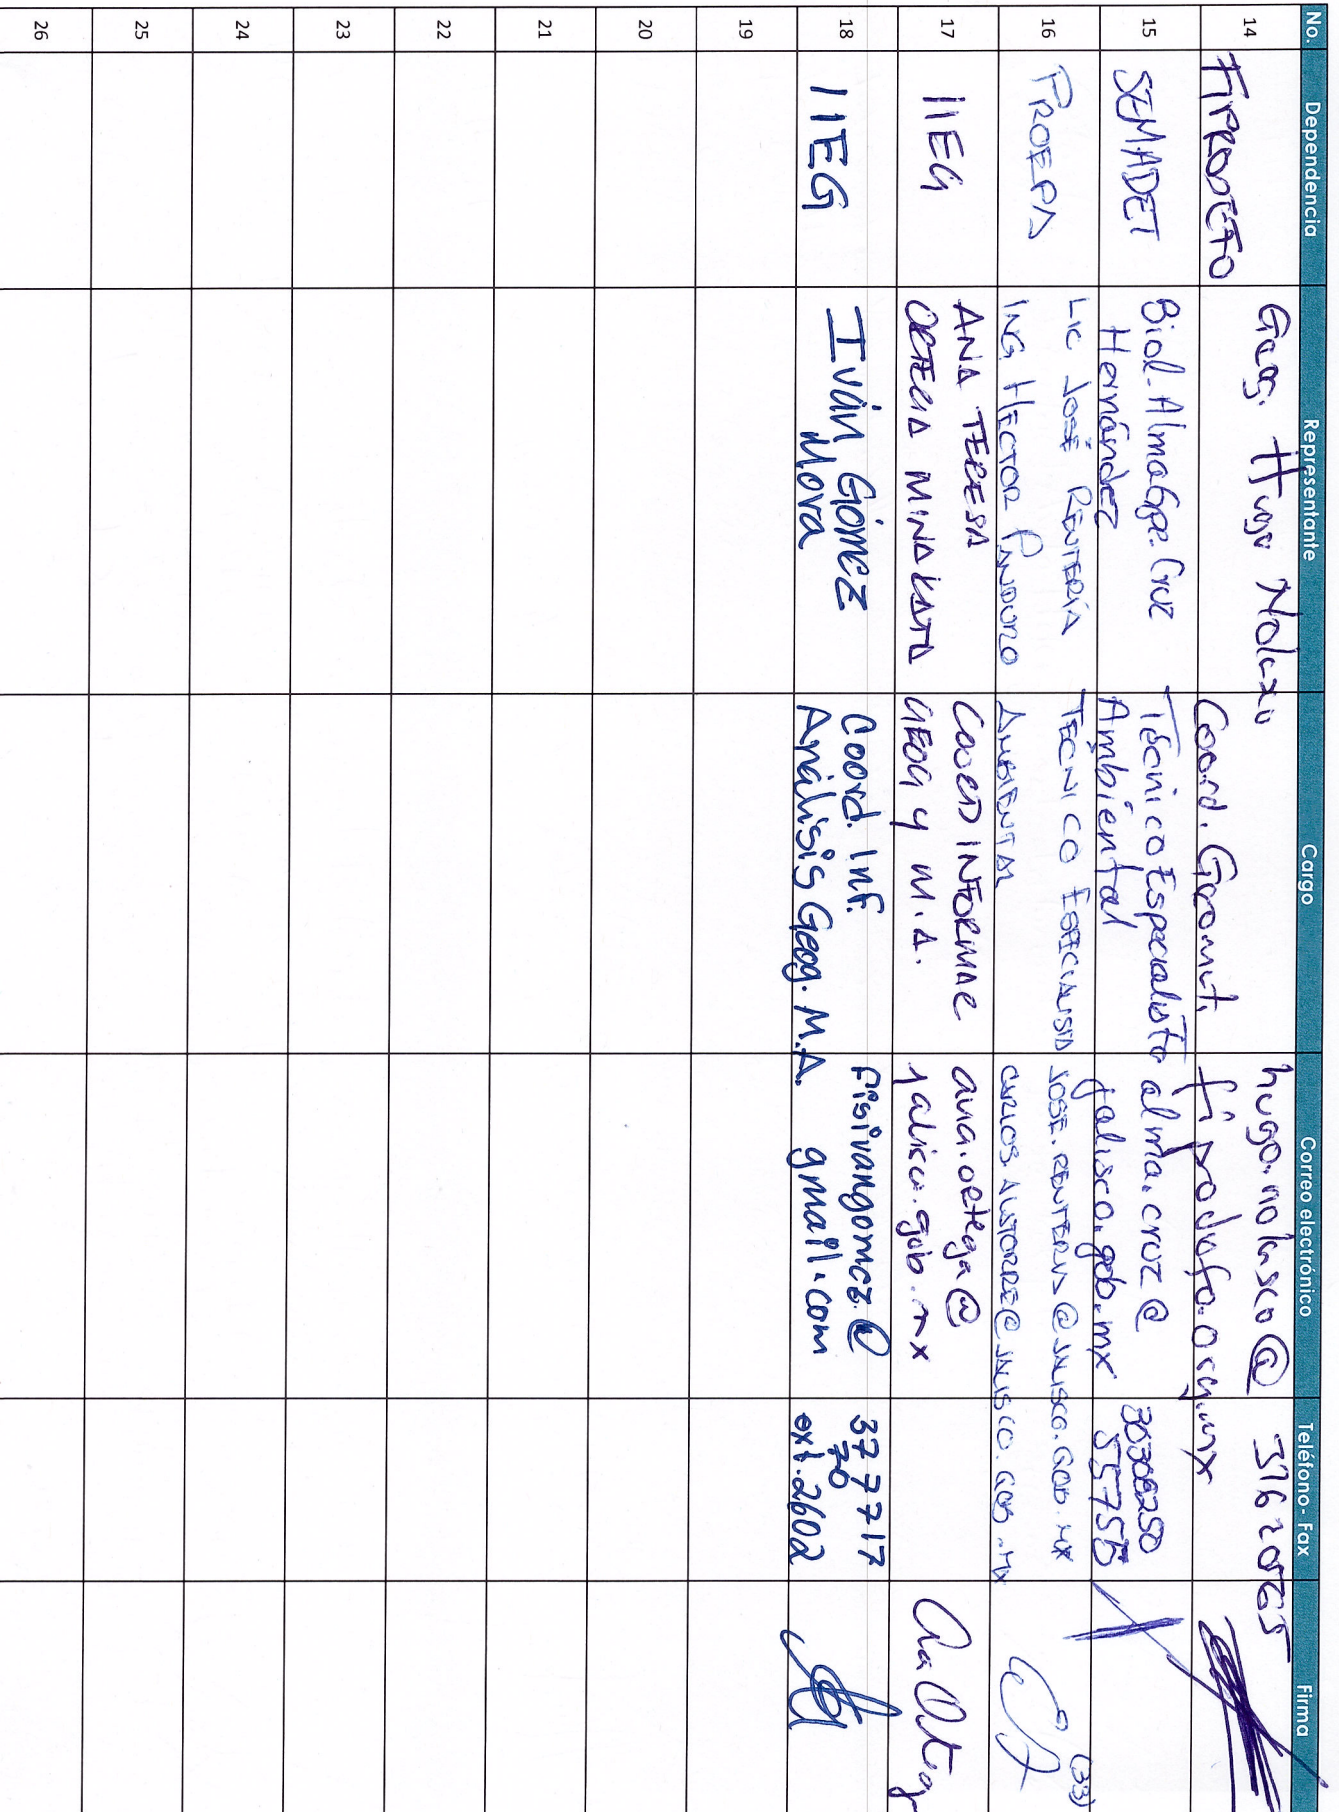 No. Dependencia Representante Cargo Correo electrónico Teléfono- Fax Firma
14 FIPRODEFO Geog. Hugo Nolasco Coord. Geomat. hugo.nolasco@
fiprodefo.org.mx
15 SEMADET Biol. Alma Gpe. Cruz
Hernández
Técnico Especialista
Ambiental
alma.cruz@
jalisco.gob.mx
30308250
55755
16 PROEPA LIC JOSÉ RENTERÍA
ING HECTOR PANDURO
TECNICO ESPECIALISTA
AMBIENTAL
JOSE.RENTERIA@JALISCO.GOB.MX
@JALISCO.GOB.MX
(33)
17 IIEG ANA TERESA
ORTEGA MINAKATA
COORD INFORMAC
GEOG Y M.A.
ana.ortega@
jalisco.gob.mx
18 IIEG Iván Gómez
Mora
Coord. Inf.
Análisis Geog. M.A.
fisivangomez@
gmail.com
377717
70
ext.2602
19
20
21
22
23
24
25
26